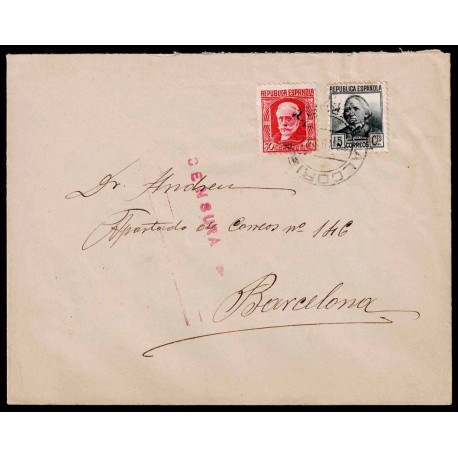 REPUBLICA ESPAÑOLA
REPUBLICA ESPAÑOLA
15 Cts
CORREOS
CENSURA
Dr. Andreu
Apartado de Correos nº 146
Barcelona